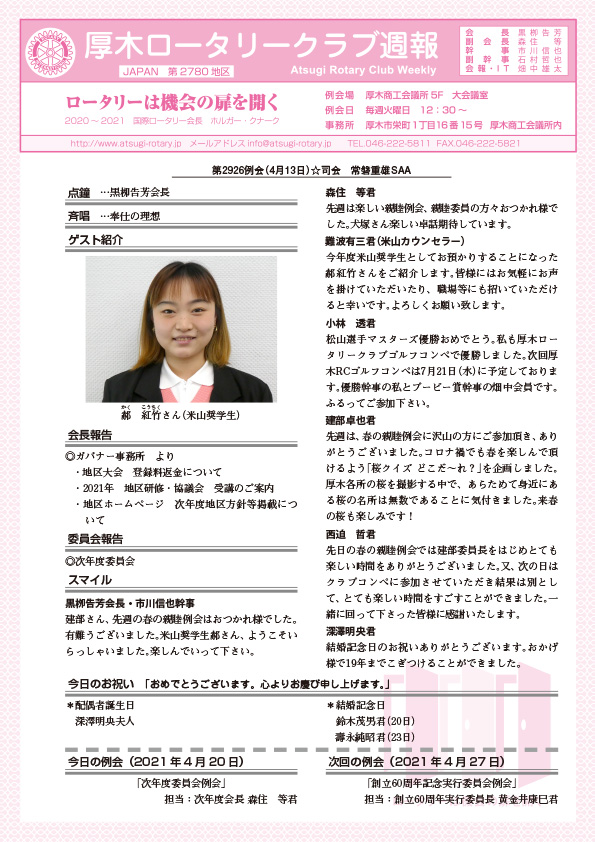 厚木ロータリークラブ週報
JAPAN 第2780地区
Atsugi Rotary Club Weekly
会長 黒栁告芳
副会長 森住 等
幹事 市川信也
副幹事 石村哲也
会報・IT 畑中雄太
ロータリーは機会の扉を開く
2020～2021 国際ロータリー会長 ホルガー・クナーク
例会場 厚木商工会議所5F 大会議室
例会日 毎週火曜日 12：30～
事務所 厚木市栄町1丁目16番15号 厚木商工会議所内
http://www.atsugi-rotary.jp メールアドレス info@atsugi-rotary.jp TEL.046-222-5811 FAX.046-222-5821
第2926例会（4月13日）☆司会 常磐重雄SAA
点鐘 …黒栁告芳会長
斉唱 …奉仕の理想
ゲスト紹介
かく こうちく
郝 紅竹さん（米山奨学生）
会長報告
◎ガバナー事務所 より
・地区大会 登録料返金について
・2021年 地区研修・協議会 受講のご案内
・地区ホームページ 次年度地区方針等掲載につ
いて
委員会報告
◎次年度委員会
スマイル
黒栁告芳会長・市川信也幹事
建部さん、先週の春の親睦例会はおつかれ様でした。
有難うございました。米山奨学生郝さん、ようこそい
らっしゃいました。楽しんでいって下さい。
森住 等君
先週は楽しい親睦例会、親睦委員の方々おつかれ様で
した。犬塚さん楽しい卓話期待しています。
難波有三君（米山カウンセラー）
今年度米山奨学生としてお預かりすることになった
郝紅竹さんをご紹介します。皆様にはお気軽にお声
を掛けていただいたり、職場等にも招いていただけ
ると幸いです。よろしくお願い致します。
小林 透君
松山選手マスターズ優勝おめでとう。私も厚木ロー
タリークラブゴルフコンペで優勝しました。次回厚
木RCゴルフコンペは7月21日（水）に予定しておりま
す。優勝幹事の私とブービー賞幹事の畑中会員です。
ふるってご参加下さい。
建部卓也君
先週は、春の親睦例会に沢山の方にご参加頂き、あり
がとうございました。コロナ禍でも春を楽しんで頂
けるよう「桜クイズ どこだ～れ？」を企画しました。
厚木各所の桜を撮影する中で、あらためて身近にあ
る桜の名所は無数であることに気付きました。来春
の桜も楽しみです！
西迫 哲君
先日の春の親睦例会では建部委員長をはじめとても
楽しい時間をありがとうございました。又、次の日は
クラブコンペに参加させていただき結果は別とし
て、とても楽しい時間をすごすことができました。一
緒に回って下さった皆様に感謝いたします。
深澤明央君
結婚記念日のお祝いありがとうございます。おかげ
様で19年までこぎつけることができました。
今日のお祝い 「おめでとうございます。心よりお慶び申し上げます。」
＊配偶者誕生日
深澤明央夫人
＊結婚記念日
鈴木茂男君（20日）
壽永純昭君（23日）
今日の例会（2021年4月20日）
「次年度委員会例会」
担当：次年度会長 森住 等君
次回の例会（2021年4月27日）
「創立60周年記念実行委員会例会」
担当：創立60周年実行委員長 黄金井康巳君